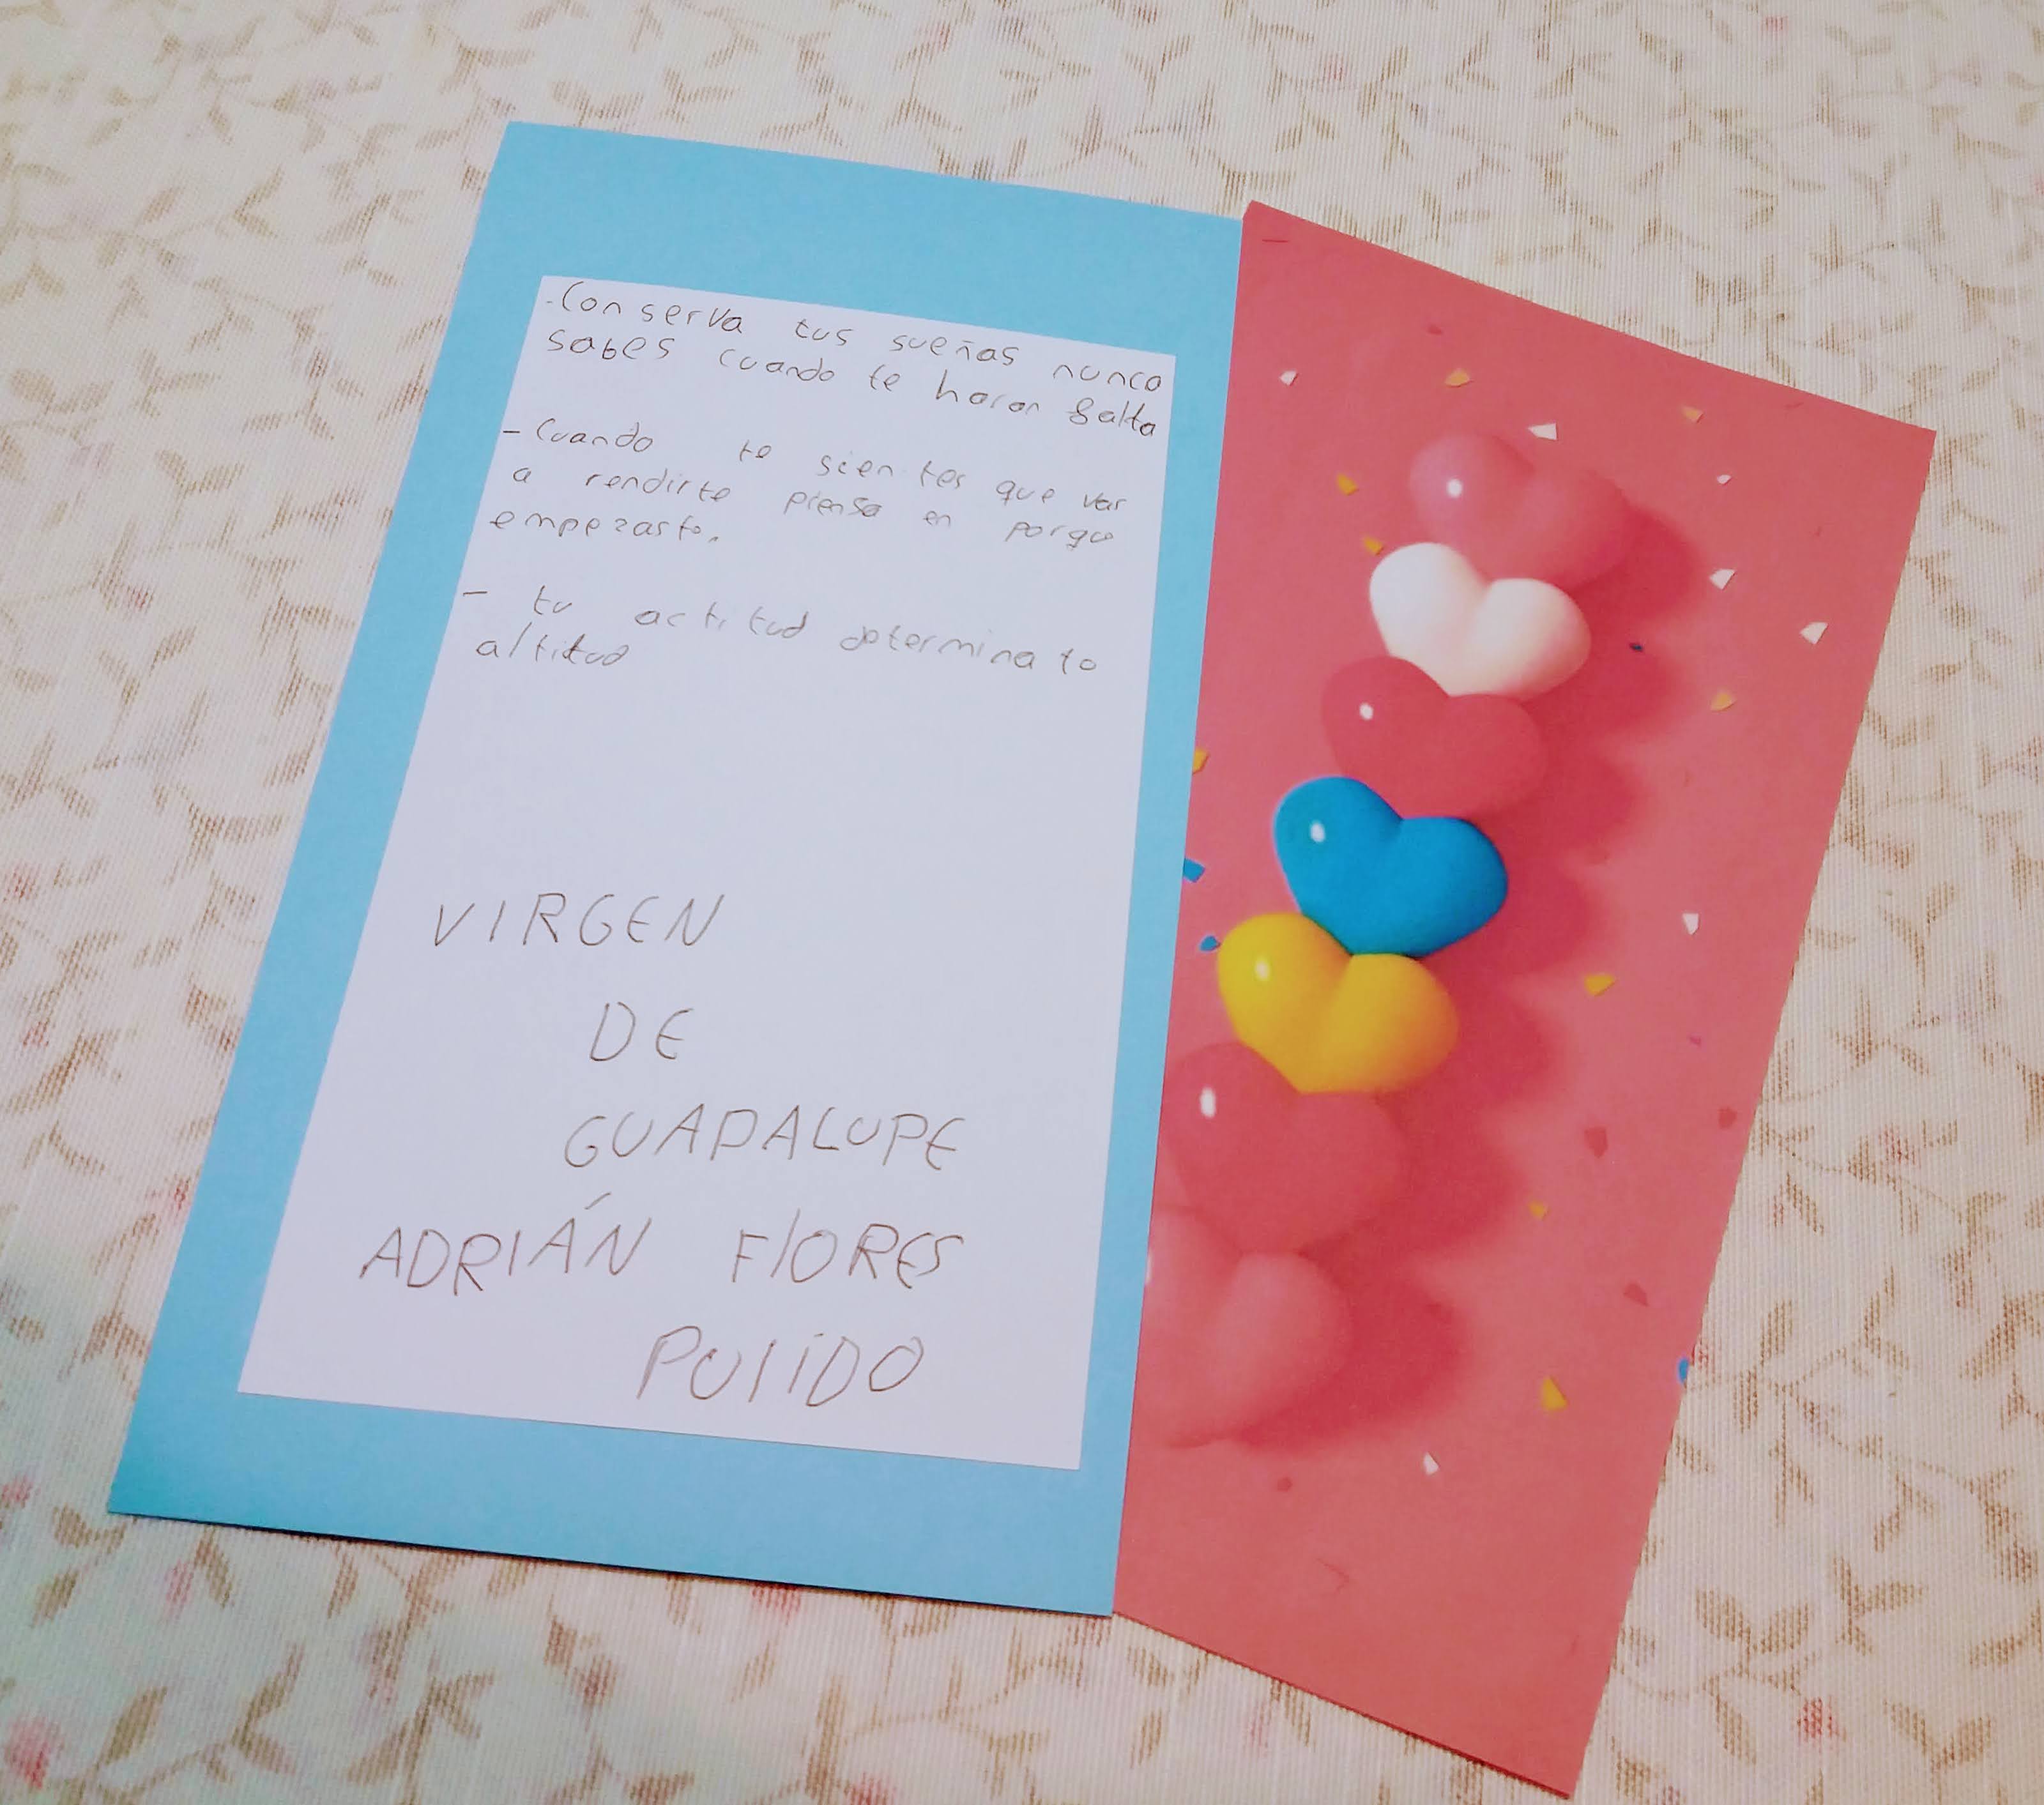 -Conserva tus sueños nunca
sabes cuando te haran falta
- Cuando te sientes que vas
a rendirte piensa en porque
empezaste.
- tu actitud determina tu
altitud
VIRGEN
DE
GUADALUPE
ADRIÁN FlORES
PUlIDO